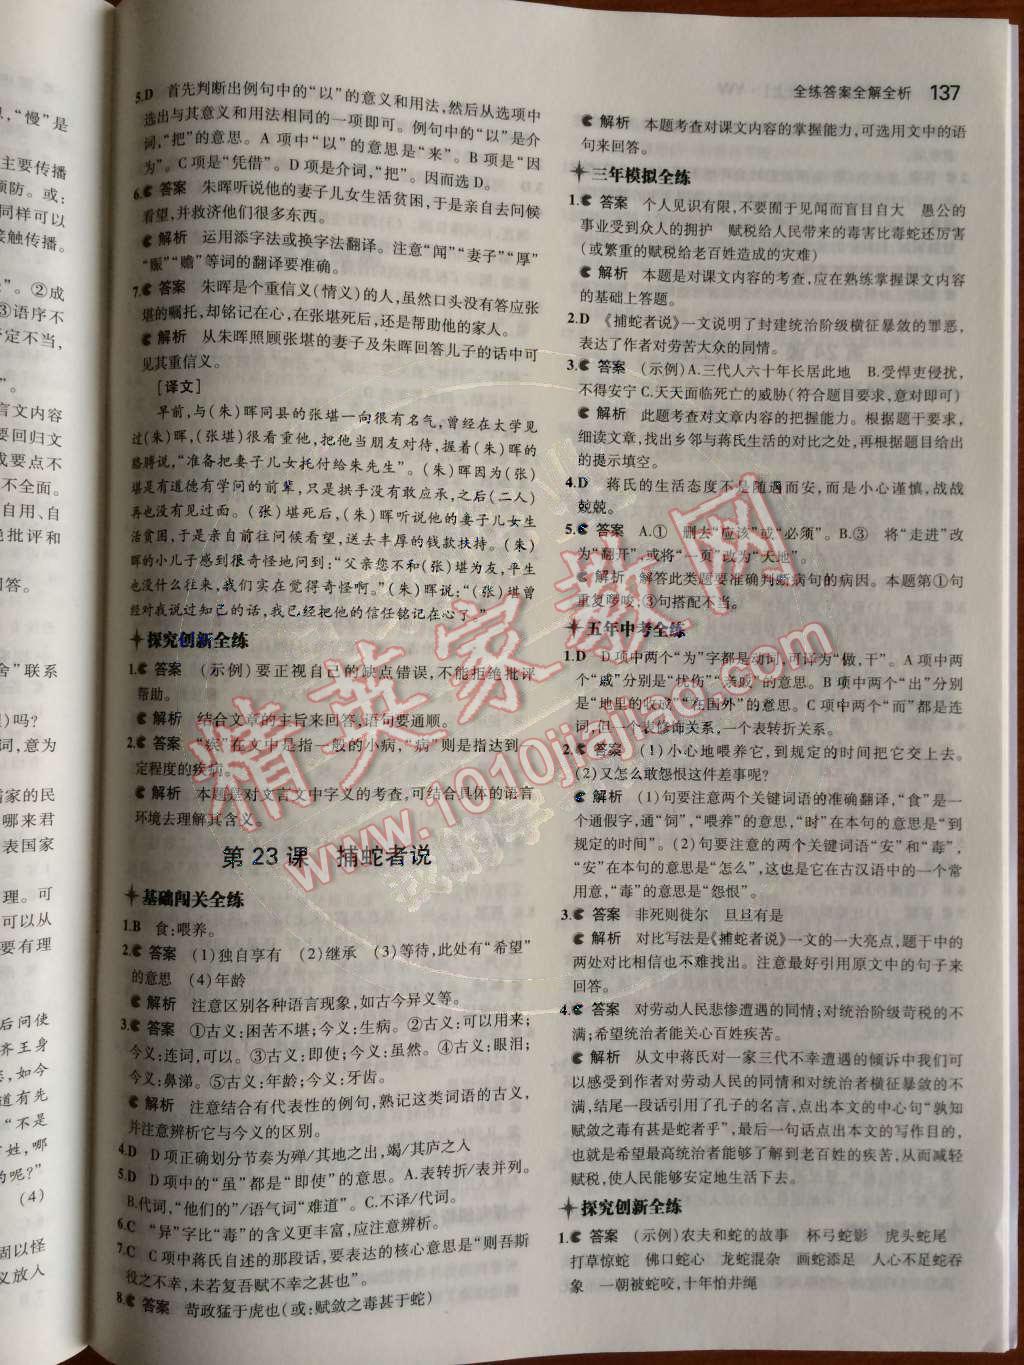 全练答案全解全析 137
5.D 首先判断出例句中的“以”的意义和用法,然后从选项中
选出与其意义和用法相同的一项即可。例句中的“以”是介
词,“把”的意思。A项中“以”的意思是“来”。B项是“因
为”。C项是“凭借”。D项是介词,“把”。因而选D。
6. 答案 朱晖听说他的妻子儿女生活贫困,于是亲自去问候
看望,并救济他们很多东西。
解析 运用添字法或换字法翻译。注意“闻”“妻子”“厚”
“赈”“赡”等词的翻译要准确。
7. 答案 朱晖是个重信义(情义)的人,虽然口头没有答应张
堪的嘱托,却铭记在心,在张堪死后,还是帮助他的家人。
解析 从朱晖照顾张堪的妻子及朱晖回答儿子的话中可
见其重信义。
[译文]
早前,与(朱)晖同县的张堪一向很有名气,曾经在太学见
过(朱)晖,(张堪)很看重他,把他当朋友对待,握着(朱)晖的
胳膊说,“准备把妻子儿女托付给朱先生”。(朱)晖因为(张)
堪是有道德有学问的前辈,只是拱手没有敢应承,之后(二人)
再也没有见过面。(张)堪死后,(朱)晖听说他的妻子儿女生
活贫困,于是亲自前往问候看望,送去丰厚的钱款扶持。(朱)
晖的小儿子感到很奇怪地问到:“父亲您不和(张)堪为友,平生
也没什么往来,我们实在觉得奇怪啊。”(朱)晖说:“(张)堪曾
经对我说过知己的话,我已经把他的信任铭记在心了。”
探究创新全练
1. 答案 (示例)要正视自己的缺点错误,不能拒绝批评
帮助。
解析 结合文章的主旨来回答,语句要通顺。
2. 答案 “疾”在文中是指一般的小病,“病”则是指达到一
定程度的疾病。
解析 本题是对文言文中字义的考查,可结合具体的语言
环境去理解其含义。
第23课 捕蛇者说
基础闯关全练
1.B 食:喂养。
2. 答案 (1)独自享有 (2)继承 (3)等待,此处有“希望”
的意思 (4)年龄
解析 注意区别各种语言现象,如古今异义等。
3. 答案 ①古义:困苦不堪;今义:生病。②古义:可以用来;
今义:连词,可以。③古义:即使;今义:虽然。④古义:眼泪;
今义:鼻涕。⑤古义:年龄;今义:牙齿。
解析 注意结合有代表性的例句,熟记这类词语的古义,
并注意辨析它与今义的区别。
4.D D项正确划分节奏为殚/其地之出,竭/其庐之入
5.D D项中的“虽”都是“即使”的意思。A.表转折/表并列。
B.代词,“他们的”/语气词“难道”。C.不译/代词。
6.C “异”字比“毒”的含义更丰富,应注意辨析。
7.C C项中蒋氏自述的那段话,要表达的核心意思是“则吾斯
役之不幸,未若复吾赋不幸之甚也”。
8. 答案 苛政猛于虎也(或:赋敛之毒甚于蛇)
解析 本题考查对课文内容的掌握能力,可选用文中的语
句来回答。
三年模拟全练
1. 答案 个人见识有限,不要囿于见闻而盲目自大 愚公的
事业受到众人的拥护 赋税给人民带来的毒害比毒蛇还厉害
(或繁重的赋税给老百姓造成的灾难)
解析 本题是对课文内容的考查,应在熟练掌握课文内容
的基础上答题。
2.D 《捕蛇者说》一文说明了封建统治阶级横征暴敛的罪恶,
表达了作者对劳苦大众的同情。
3. 答案 (示例)A.三代人六十年长居此地 B.受悍吏侵扰,
不得安宁 C.天天面临死亡的威胁(符合题目要求,意对即可)
解析 此题考查对文章内容的把握能力。根据题干要求,
细读文章,找出乡邻与蒋氏生活的对比之处,再根据题目给出
的提示填空。
4.D 蒋氏的生活态度不是随遇而安,而是小心谨慎,战战
兢兢。
5. 答案 A.① 删去“应该”或“必须”。B.③ 将“走进”改
为“翻开”,或将“一页”改为“天地”。
解析 解答此类题要准确判断病句的病因。本题第①句
重复啰唆,③句搭配不当。
五年中考全练
1.D D项中两个“为”字都是动词,可译为“做,干”。A项中两
个“戚”分别是“忧伤”“亲戚”的意思。B项中两个“出”分别
是“地里的收成”“在国外”的意思。C项中两个“而”都是连
词,但一个表修饰关系,一个表转折关系。
2. 答案 (1)小心地喂养它,到规定的时间把它交上去。
(2)又怎么敢怨恨这件差事呢?
解析 (1)句要注意两个关键词语的准确翻译,“食”是一
个通假字,通“饲”,“喂养”的意思,“时”在本句的意思是“到
规定的时间”。(2)句要注意的两个关键词语“安”和“毒”,
“安”在本句的意思是“怎么”,这也是它在古汉语中的一个常
用意,“毒”的意思是“怨恨”。
3. 答案 非死则徙尔 旦旦有是
解析 对比写法是《捕蛇者说》一文的一大亮点,题干中的
两处对比相信也不难找出。注意最好引用原文中的句子来
回答。
4. 答案 对劳动人民悲惨遭遇的同情;对统治阶级苛税的不
满;希望统治者能关心百姓疾苦。
解析 从文中蒋氏对一家三代不幸遭遇的倾诉中我们可
以感受到作者对劳动人民的同情和对统治者横征暴敛的不
满,结尾一段话引用了孔子的名言,点出本文的中心句“孰知
赋敛之毒有甚是蛇者乎”,最后一句话点出本文的写作目的,
也就是希望最高统治者能够了解到老百姓的疾苦,从而减轻
赋税,使人民能够安定地生活下去。
探究创新全练
1. 答案 (示例)农夫和蛇的故事 杯弓蛇影 虎头蛇尾
打草惊蛇 佛口蛇心 龙蛇混杂 画蛇添足 人心不足蛇吞
象 一朝被蛇咬,十年怕井绳
精英家教网
www.1010jiajiao.com